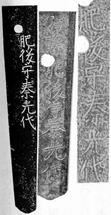 肥後守秦光代
肥後守秦光代
肥後守秦光代